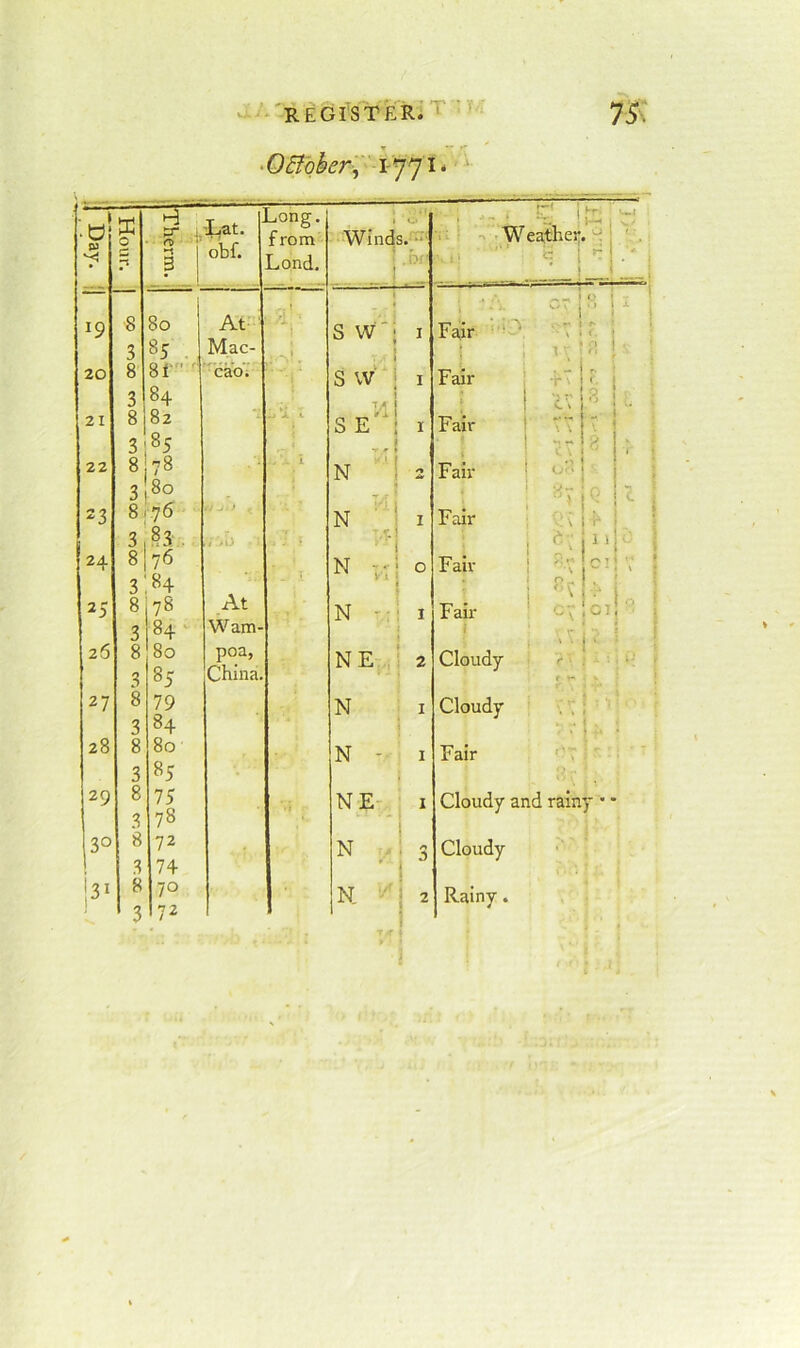 REGISTER. 75
October, 1771.
Day. Hour. Therm. Lat. obſ. Long. from Lond. Winds. Weather.
19 8 80 At S W 1 Fair
3 85 Mac-
20 8 81 cao. S W 1 Fair
3 84
21 8 82 S E 1 Fair
3 85
22 8 78 N 2 Fair
3 80
23 8 76 N 1 Fair
3 83
24 8 76 N 0 Fair
3 84
25 8 78 At N 1 Fair
3 84 Wam-
26 8 80 poa, N E 2 Cloudy
3 85 China.
27 8 79 N 1 Cloudy
3 84
28 8 80 N 1 Fair
3 85
29 8 75 N E 1 Cloudy and rainy
3 78
30 8 72 N 3 Cloudy
3 74
31 8 70 N 2 Rainy.
3 72